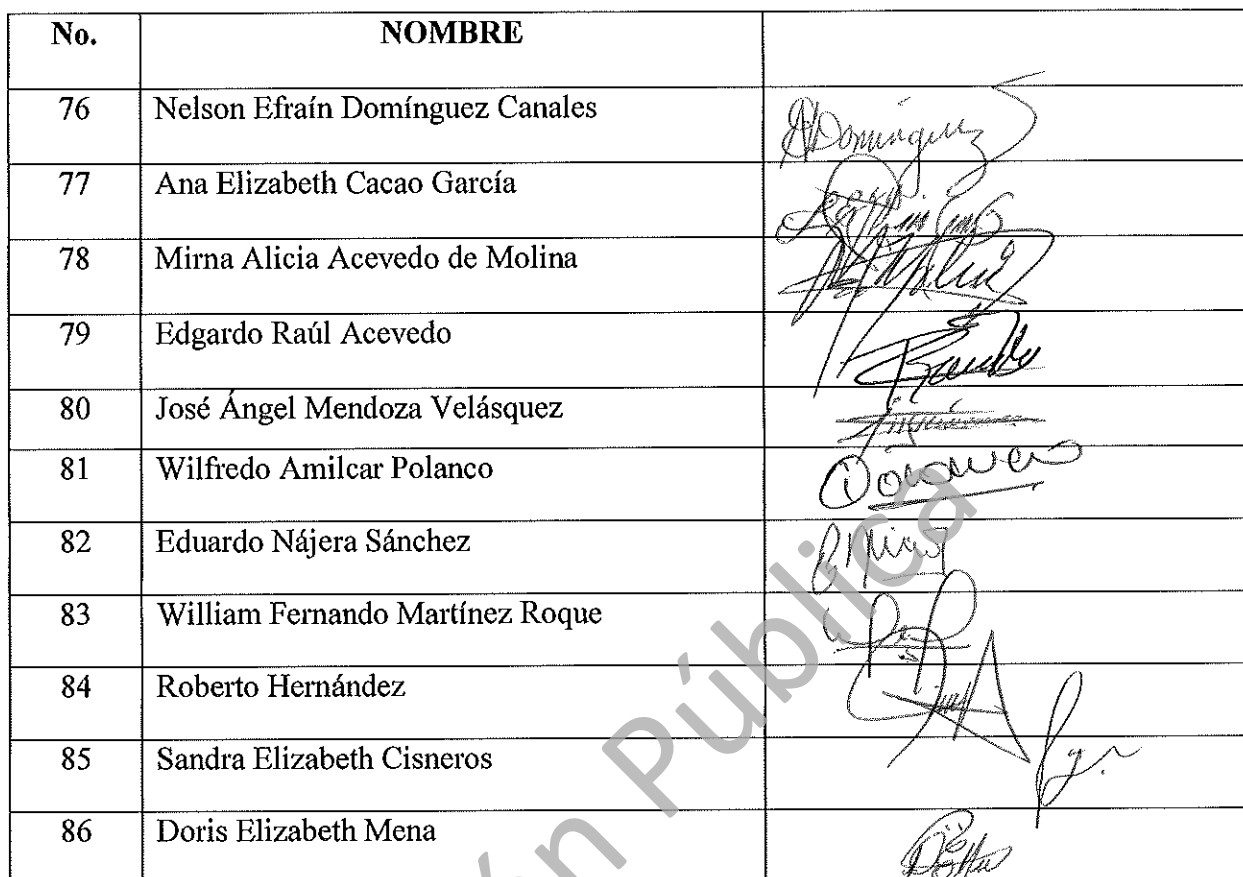 No. NOMBRE
76 Nelson Efraín Domínguez Canales
77 Ana Elizabeth Cacao García
78 Mirna Alicia Acevedo de Molina
79 Edgardo Raúl Acevedo
80 José Ángel Mendoza Velásquez
81 Wilfredo Amilcar Polanco
82 Eduardo Nájera Sánchez
83 William Fernando Martínez Roque
84 Roberto Hernández
85 Sandra Elizabeth Cisneros
86 Doris Elizabeth Mena
Pública